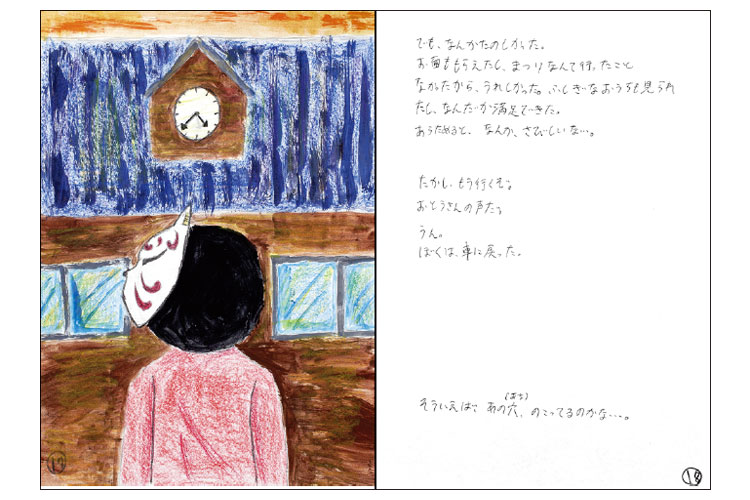 でも、なんかたのしかった。
お面ももらえたし、まつりなんて行ったこと
なかたから、うれしかった。ふしぎなおうちも見られ
たし、なんだか満足できた。
あらためると、なんか、さびしいな…。
たかし、もう行くぞ。
おとうさんの声だ。
うん。
ぼくは、車に戻った。
(あな)
そういえば、あの穴、のこってるのかな…。